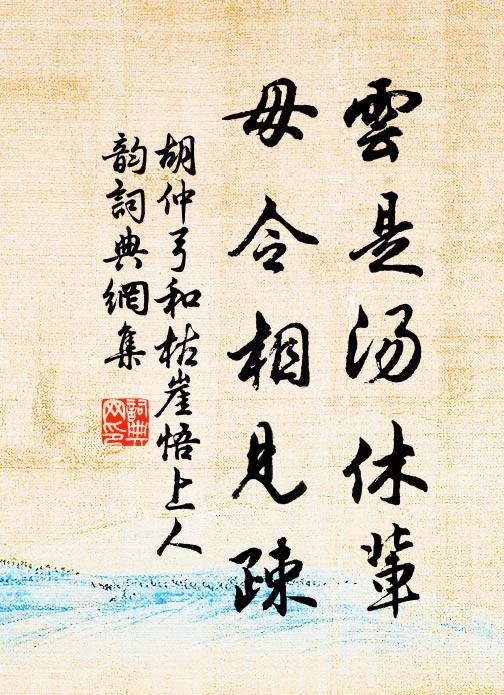 雲是汤休輩
毋令相見疎
胡仲弓和枯崖悟上人
韵詞典網集
詞典网印